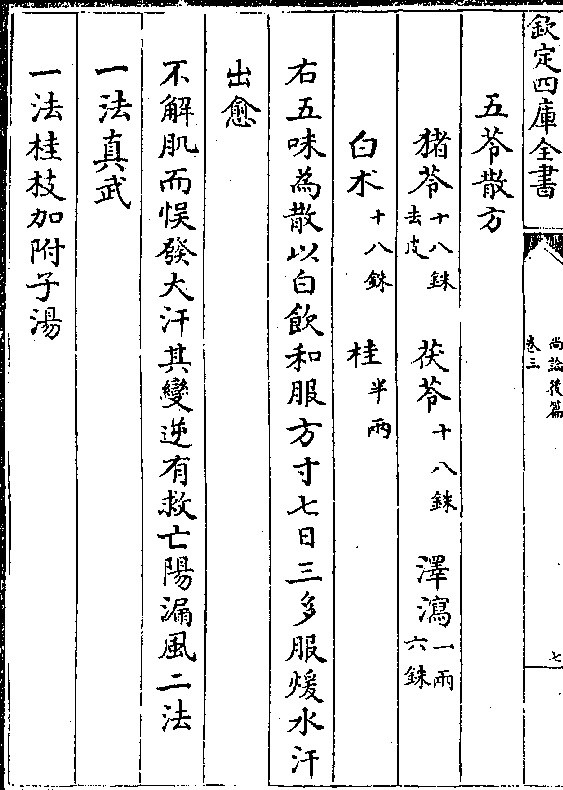 欽定四庫全書
尚論後篇
卷三
七
五苓散方
猪苓十八銖去皮　茯苓十八銖　澤瀉一兩六銖
白术十八銖　桂半兩
右五味為散以白飲和服方寸七日三多服煖水汗
出愈
不解肌而悞發大汗其變逆有救亡陽漏風二法
一法真武
一法桂枝加附子湯